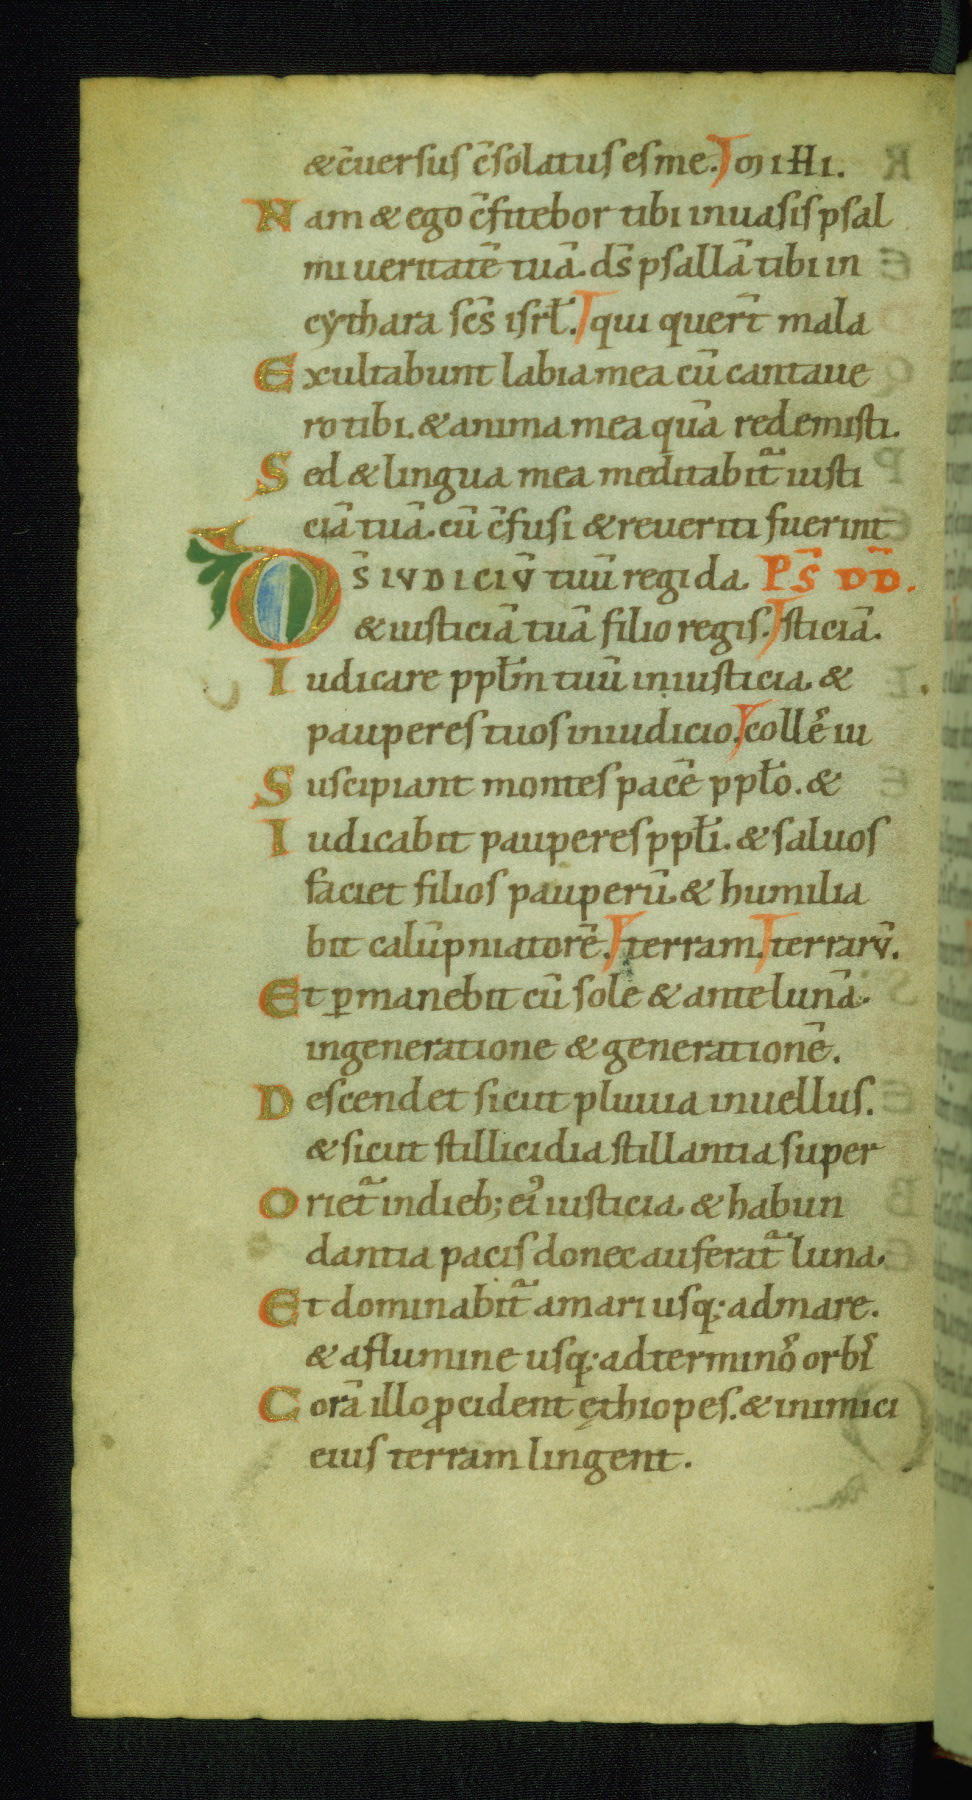 &c̄uersus c̄solatus es me. mIHI.
Nam & ego c̄fitebor tibi inuasis psal
mi ueritatē tuā. d̄s psallā tibi in
cythara sc̄s isrł. qui querīt mala
Exultabunt labia mea cū cantaue
ro tibi. & anima mea quā redemisti.
Sed & lingua mea meditabit᷑ iusti
ciā tuā. cū c̄fusi & reueriti fuerint
DS̄ IVDICIV̄ tuū regi da. PS̄ DD̄.
& iusticiā tuā filio regis. sticiā.
Iudicare ppłm tuū iniusticia. &
pauperes tuos iniudicio. collē iu
Suscipiant montes pacē ppło. &
Iudicabit pauperes ppłi. & saluos
faciet filios pauperū. & humilia
bit calūpniatorē. terram. terrarv̄.
Et p̱manebit cū sole & ante lunā.
ingeneratione & generationē.
Descendet sicut pluuia inuellus.
& sicut stillicidia stillantia super
Oriet᷑ indieb; ei᾽ iusticia. & habun
dantia pacis donec auferat᷑ luna.
Et dominabit᷑ amari usq; admare.
& aflumine usq; adtermino᾽ orbī
Corā illo ꝓcident ęthiopes. & inimici
eius terram lingent.